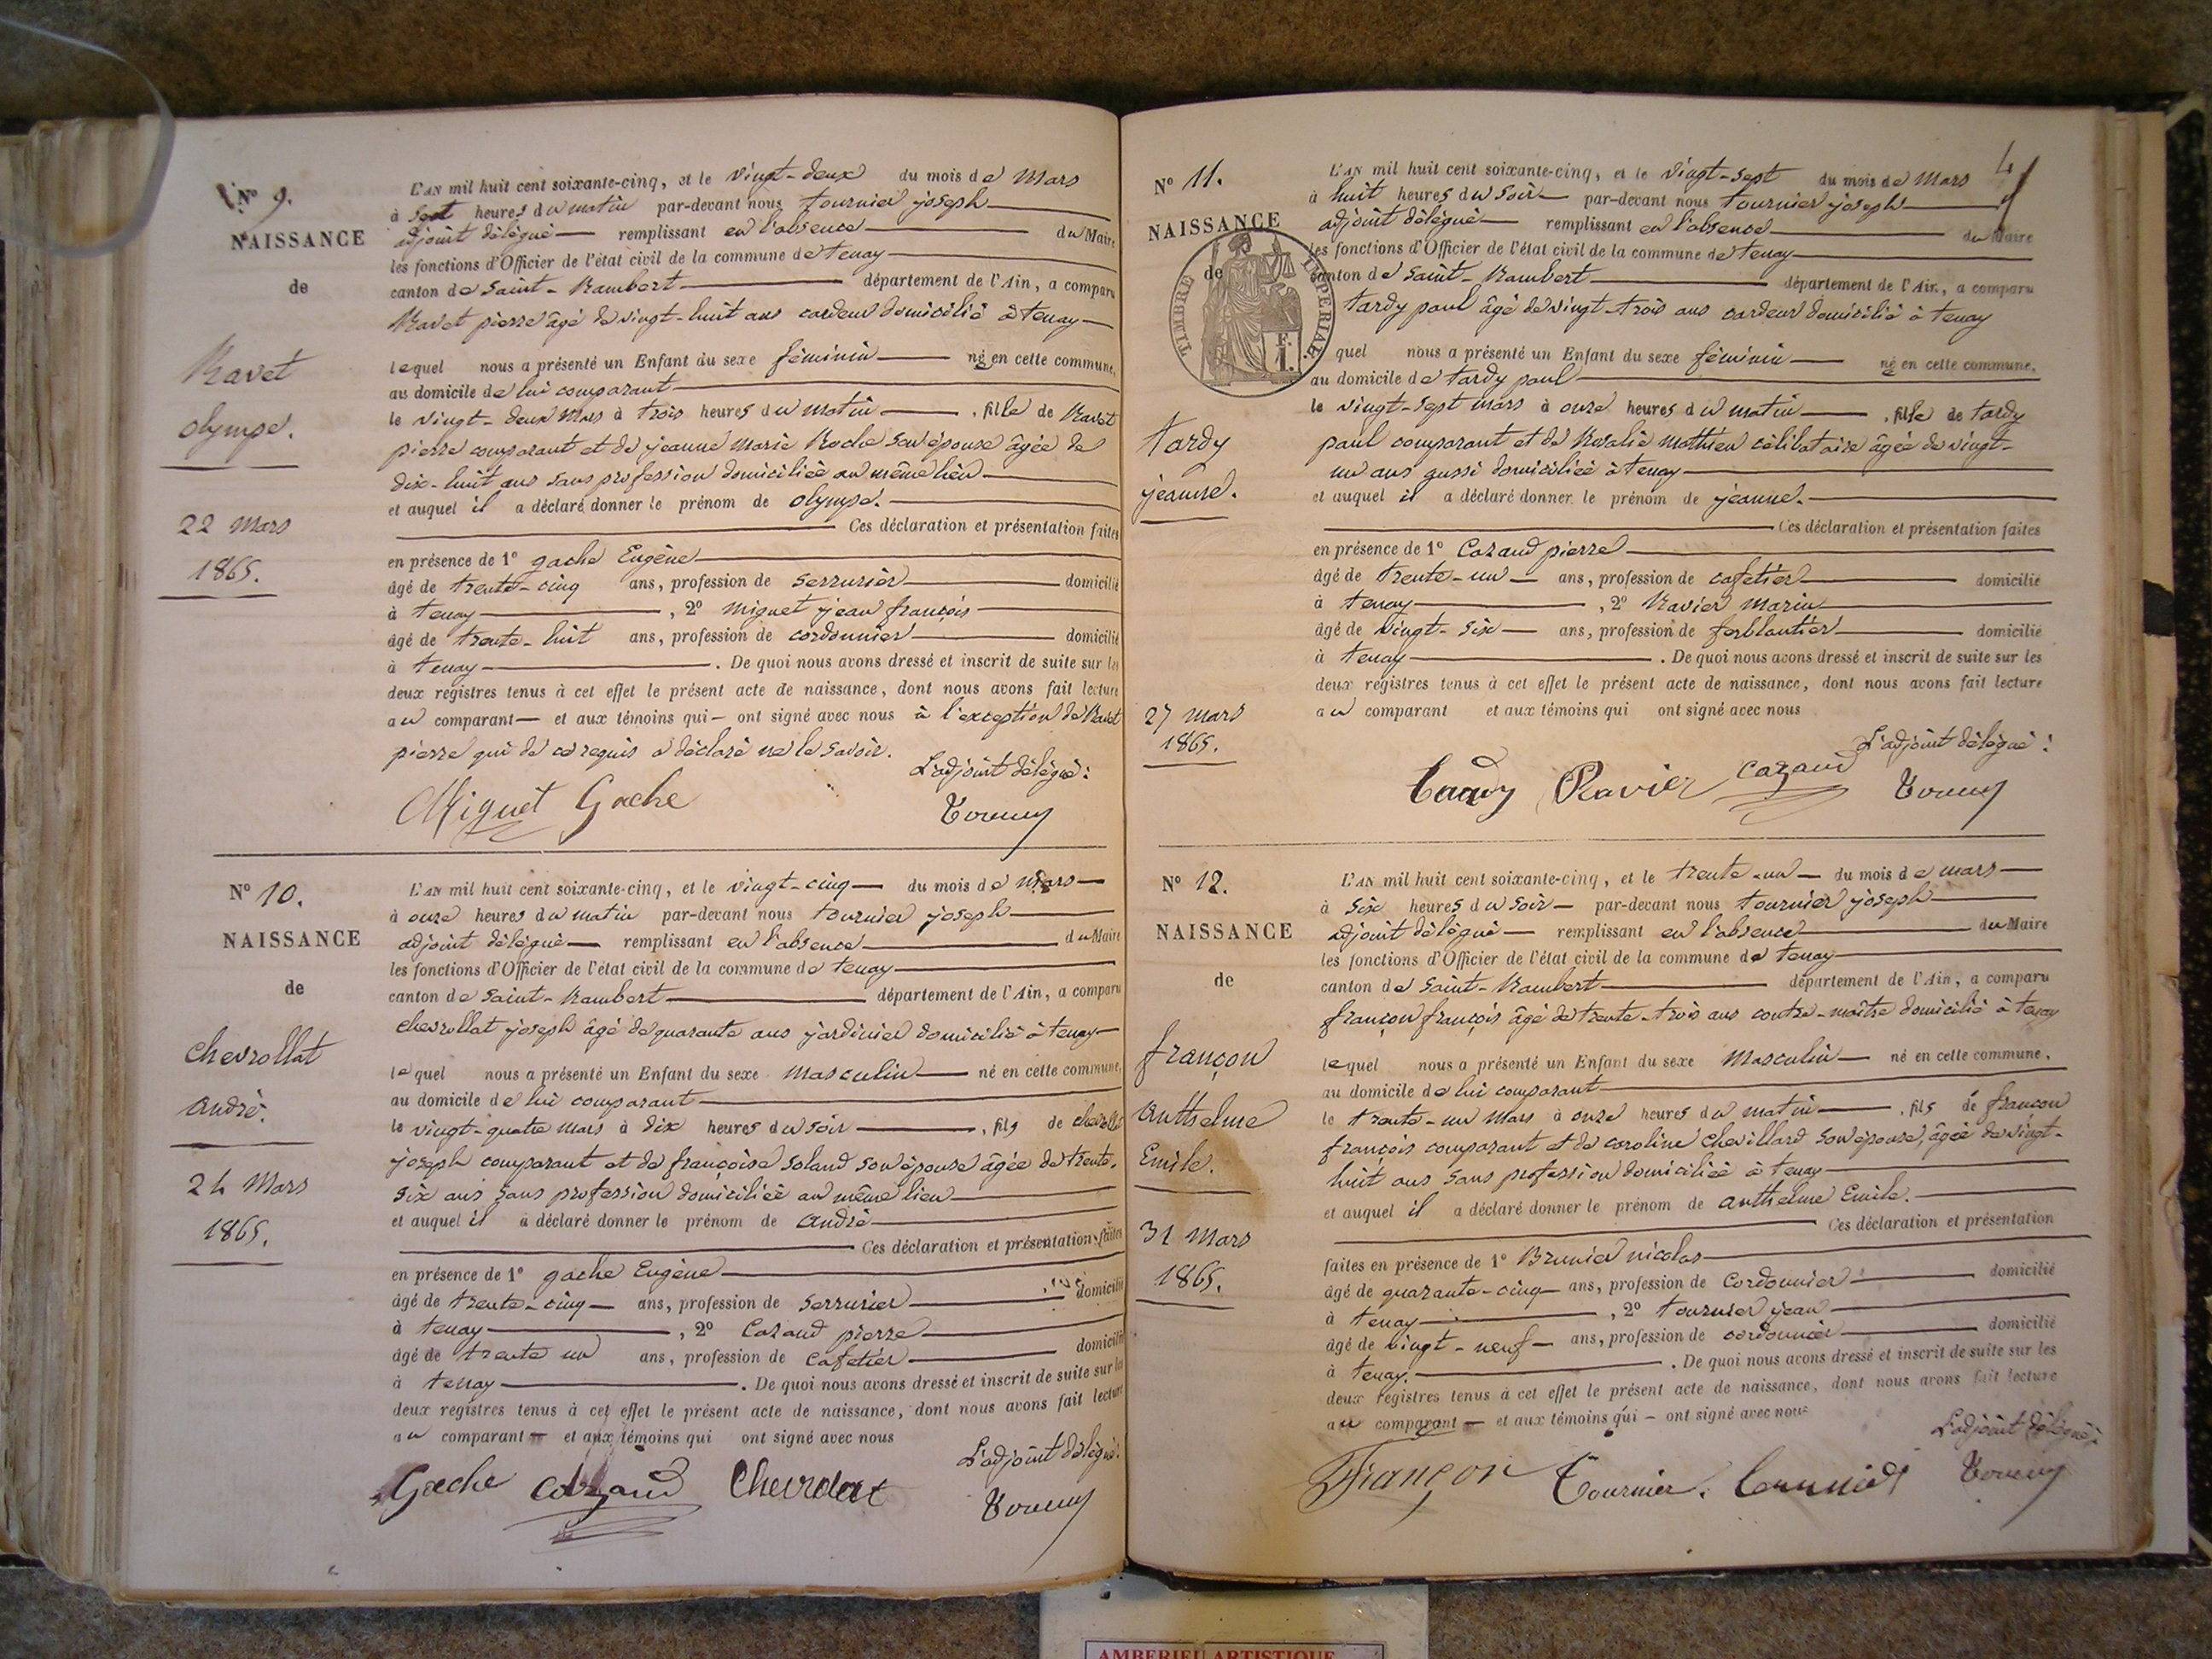 N° 9.
NAISSANCE
de
Ravet
olympe.
22 Mars
1865.
L'AN mil huit cent soixante-cinq, et le vingt-deux du mois de Mars
à sept heures du matin par-devant nous tournier joseph
adjoint délégué remplissant en l'absence du Maire
les fonctions d'Officier de l'état civil de la commune de tenay
canton de Saint-Rambert département de l'Ain, a comparu
Ravet pierre âgé de vingt-huit ans cardeur domicilié à tenay
lequel nous a présenté un Enfant du sexe féminin née en cette commune,
au domicile de lui comparant
le vingt-deux Mars à trois heures du matin, fille de Ravet
pierre comparant et de jeanne Marie Roche son épouse âgée de
dix-huit ans sans profession domiciliée au même lieu
et auquel il a déclaré donner le prénom de olympe.
Ces déclaration et présentation faites
en présence de 1° gache Eugène
âgé de trente-cinq ans, profession de serrurier domicilié
à tenay, 2° Miguet jean françois
âgé de trente-huit ans, profession de cordonnier domicilié
à tenay. De quoi nous avons dressé et inscrit de suite sur les
deux registres tenus à cet effet le présent acte de naissance, dont nous avons fait lecture
au comparant et aux témoins qui ont signé avec nous à l'exception de Ravet
pierre qui de ce requis a déclaré ne le savoir.
L'adjoint délégué :
Miguet Gache
N° 10.
NAISSANCE
de
Chevrollat
André.
24 Mars
1865.
L'AN mil huit cent soixante-cinq, et le vingt-cinq du mois de Mars
à onze heures du matin par-devant nous tournier joseph
adjoint délégué remplissant en l'absence du Maire
les fonctions d'Officier de l'état civil de la commune de tenay
canton de Saint-Rambert département de l'Ain, a comparu
Chevrollat joseph âgé de quarante ans jardinier domicilié à tenay
lequel nous a présenté un Enfant du sexe Masculin né en cette commune,
au domicile de lui comparant
le vingt-quatre Mars à dix heures du soir, fils de chevrollat
joseph comparant et de françoise Soland son épouse âgée de trente-
six ans sans profession domiciliée au même lieu
et auquel il a déclaré donner le prénom de André
Ces déclaration et présentation faites
en présence de 1° gache Eugène
âgé de trente-cinq ans, profession de serrurier domicilié
à tenay, 2° Cozand pierre
âgé de trente un ans, profession de cafetier domicilié
à tenay. De quoi nous avons dressé et inscrit de suite sur les
deux registres tenus à cet effet le présent acte de naissance, dont nous avons fait lecture
au comparant et aux témoins qui ont signé avec nous
L'adjoint délégué :
Gache Cozand Chevrolat
4
N° 11.
NAISSANCE
de
TIMBRE IMPERIAL
F.
1.
tardy
jeanne.
27 Mars
1865.
L'AN mil huit cent soixante-cinq, et le vingt-sept du mois de Mars
à huit heures du soir par-devant nous tournier joseph
adjoint délégué remplissant en l'absence du Maire
les fonctions d'Officier de l'état civil de la commune de tenay
canton de Saint-Rambert département de l'Ain, a comparu
tardy paul âgé de vingt-trois ans cardeur domicilié à tenay
quel nous a présenté un Enfant du sexe féminin née en cette commune,
au domicile de tardy paul
le vingt-sept mars à onze heures du matin, fille de tardy
paul comparant et de Rosalie Mathieu célibataire âgée de vingt-
un ans aussi domiciliée à tenay
et auquel il a déclaré donner le prénom de jeanne.
Ces déclaration et présentation faites
en présence de 1° Cozand pierre
âgé de trente-un ans, profession de cafetier domicilié
à tenay, 2° Ravier Marin
âgé de vingt-six ans, profession de ferblantier domicilié
à tenay. De quoi nous avons dressé et inscrit de suite sur les
deux registres tenus à cet effet le présent acte de naissance, dont nous avons fait lecture
au comparant et aux témoins qui ont signé avec nous
L'adjoint délégué :
Tardy Ravier Cozand
N° 12.
NAISSANCE
de
françon
Anthelme
Emile.
31 Mars
1865.
L'AN mil huit cent soixante-cinq, et le trente-un du mois de mars
à six heures du soir par-devant nous tournier joseph
adjoint délégué remplissant en l'absence du Maire
les fonctions d'Officier de l'état civil de la commune de tenay
canton de Saint-Rambert département de l'Ain, a comparu
françon françois âgé de trente-trois ans contre-maître domicilié à tenay
lequel nous a présenté un Enfant du sexe Masculin né en cette commune,
au domicile de lui comparant
le trente-un Mars à onze heures du matin, fils de françon
françois comparant et de caroline Chevillard son épouse, âgée de vingt-
huit ans sans profession domiciliée à tenay
et auquel il a déclaré donner le prénom de anthelme Emile.
Ces déclaration et présentation
faites en présence de 1° Brunier nicolas
âgé de quarante-cinq ans, profession de Cordonnier domicilié
à tenay, 2° tournier jean
âgé de vingt-neuf ans, profession de cordonnier domicilié
à tenay. De quoi nous avons dressé et inscrit de suite sur les
deux registres tenus à cet effet le présent acte de naissance, dont nous avons fait lecture
au comparant et aux témoins qui ont signé avec nous
L'adjoint délégué :
Françon Tournier.
AMBERIEU ARTISTIQUE